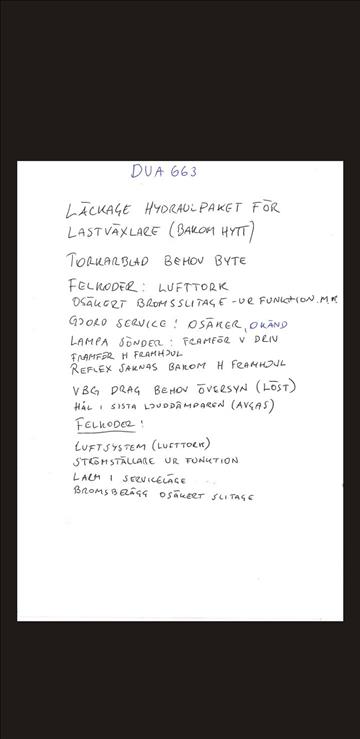 DUA 663
LÄCKAGE HYDRAULPAKET FÖR
LASTVÄXLARE (BAKOM HYTT)
TORKARBLAD BEHOV BYTE
FELKODER: LUFTTORK
OSÄKERT BROMSSLITAGE - UR FUNKTION. M.M
GJORD SERVICE: OSÄKER, OKÄND
LAMPA SÖNDER: FRAMFÖR V DRIV
FRAMFÖR H FRAMHJUL
REFLEX SAKNAS BAKOM H FRAMHJUL
VBG DRAG BEHOV ÖVERSYN (LÖST)
HÅL I SISTA LJUDDÄMPAREN (AVGAS)
FELKODER:
LUFTSYSTEM (LUFTTORK)
STRÖMSTÄLLARE UR FUNKTION
LARM I SERVICELÄGE
BROMSBELÄGG OSÄKERT SLITAGE